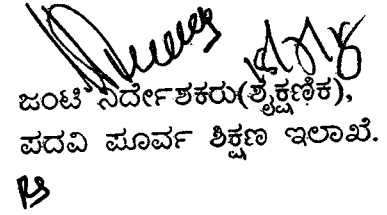 ಜಂಟಿ ನಿರ್ದೇಶಕರು(ಶೈಕ್ಷಣಿಕ),
ಪದವಿ ಪೂರ್ವ ಶಿಕ್ಷಣ ಇಲಾಖೆ.